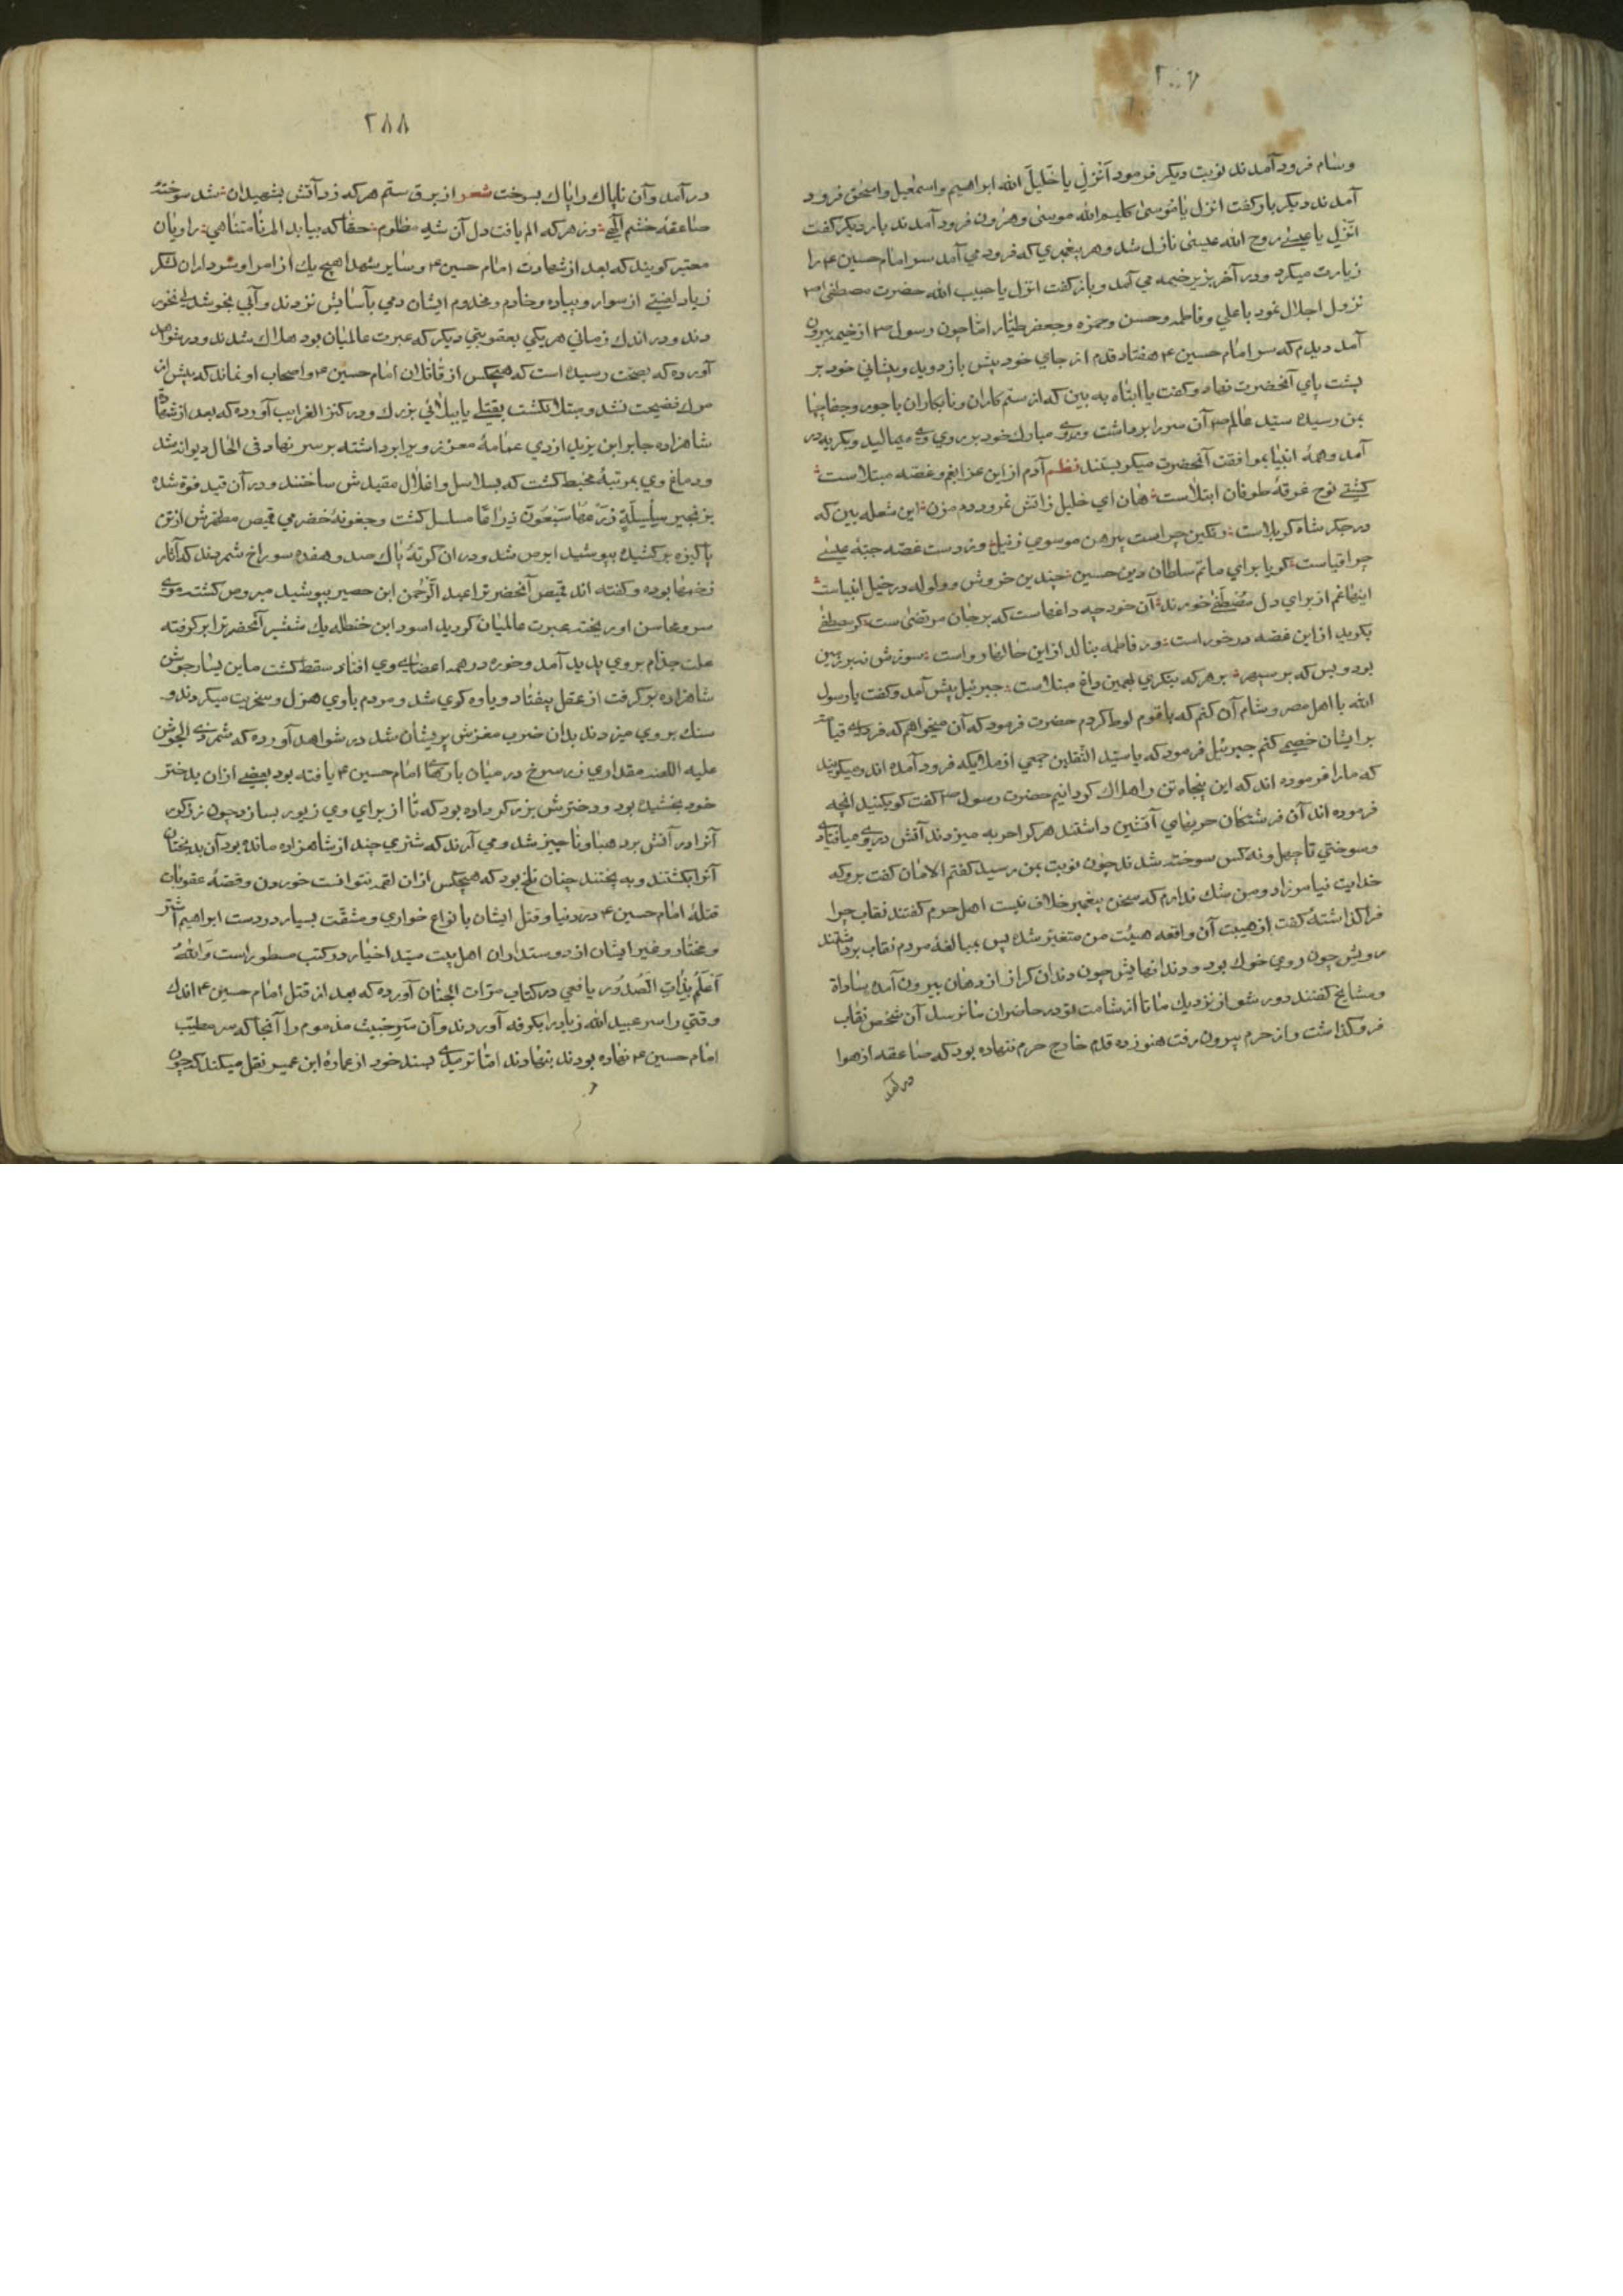 وسام فرود آمدند نوبت دیکر فرمود اَنْزِلْ یا خَلیلَ الله ابراهیم واسمعیل واسحق فرود
آمدند دیکر بار کفت انزل یا مُوسیٰ کلیم الله موسیٰ وهرون فرود آمدند بار دیکر کفت
انزل یا عیسی روح الله عیسیٰ نازل شد وهر پیغمبری که فرود می آمد سر امام حسین ع را
زیارت میکرد ودر آخر بزیر خیمه می آمد وباز کفت انزل یا حبیب الله حضرت مصطفی ص
نزول اجلال نمود با علی وفاطمه وحسن وحمزه وجعفر طیار اما چون رسول ص از خیمه بیرون
آمد دیدم که سر امام حسین ع هفتاد قدم از جای خود پیش باز دوید وپیشانی خود بر
پشت پای آنحضرت نهاد وکفت یا ابتاه به بین که از ستم کاران ونابکاران با جور وجفا چها
بمن رسیده سید عالم ص آن سر را برداشت وروی مبارك خود بر روی وی میمالید ومیکریه در
آمد وهمهٔ انبیا بموافقت آنحضرت میکریستند نظم آدم از این عزا بغم وغصه مبتلاست
کشتی نوح غرقهٔ طوفان ابتلاست هان ای خلیل زاتش نمرود دم مزن این شعله بین که
در جکر شاه کربلاست رنکین چراست پیرهن موسوی ز نیل وز دست غصه جبهٔ عیسی
چرا قباست کویا برای ماتم سلطان دین حسین چندین خروش وولوله در خیل انبیاست
اینها غم از برای دل مصطفی خورند آن خود چه داغهاست که بر جان مرتضیٰ ست کر مصطفی
بکرید از این غصه در خور است ور فاطمه بنالد از این حالها رواست سوزش نه بر زمین
بود وبس که بر سپهر بر هر که بنکری بهمین داغ مبتلاست جبرئیل پیش آمد وکفت یا رسول
الله با اهل مصر وشام آن کنم که با قوم لوط کردم حضرت فرمود که آن میخواهم که فردای قیامت
بر ایشان خصمی کنم جبرئیل فرمود که یا سید الثقلین جمعی از ملایکه فرود آمده اند ومیکویند
که ما را فرموده اند که این پنجاه تن را هلاك کردانیم حضرت رسول ص کفت کو بکنید انچه
فرموده اند آن فرشتکان حربهای آتشین داشتند هر کرا حربه میزدند آتش در وی میافتاد
وسوختی تا چهل ونه کس سوخته شدند چون نوبت بمن رسید کفتم الامان کفت برو که
خدایت نیامرزاد ومن شك ندارم که سخن پیغمبر خلاف نیست اهل حرم کفتند نقاب چرا
فرا کذاشتهٔ کفت از هیبت آن واقعه هیئت من متغیر شده پس بمبالغهٔ مردم نقاب برداشتند
رویش چون روی خوك بود ودندانهایش چون دندان کراز از دهان بیرون آمده سادات
ومشایخ کفتند دور شو از نزدیك ما تا از شامت تو در حاضران سا نرسد آن شخص نقاب
فرو کذاشت واز حرم بیرون رفت هنوز ده قدم خارج حرم ننهاده بود که صاعقه از هوا
در آمد
۲۸۸
در آمد وآن ناپاك را پاك بسوخت شعر از برق ستم هر که زد آتش بشهیدان شد سوختهٔ
صاعقهٔ خشم الهی وز هر که الم یافت دل آن شه مظلوم حقا که بیابد الم نامتناهی راویان
معتبر کویند که بعد از شهادت امام حسین ع وسایر شهدا هیچ یك از امرا وسرداران لشکر
زیاد لعنتی از سوار وپیاده وخادم ومخدوم ایشان دمی بآسایش نزدند وآبی بخوشدلی نخور
دند ودر اندك زمانی هر یکی بعقوبتی دیکر که عبرت عالمیان بود هلاك شدند ودر شواهد
آورده که بصحت رسیده است که هیچکس از قاتلان امام حسین ع واصحاب او نماند که پیش از
مرك فضیحت نشد ومبتلا نکشت بقتلی یا ببلائی بزرك ودر کنز الغرایب آورده که بعد از شهادت
شاهزاده جابر ابن یزید ازدی عمامهٔ معزز ویرا برداشته بر سر نهاد فی الحال دیوانه شد
ودماغ وی بمرتبهٔ مخبط کشت که بسلاسل واغلال مقیدش ساختند ودر آن قید فوة شده
بزنجیر سِلْسِلَةٍ ذَرْعُهَا سَبْعُونَ ذِرَاعًا مسلسل کشت وجعونهٔ حضرمی قمیص مطهرش از تن
پاکیزه بر کشیده بپوشید ابرص شد ودر ان کرتهٔ پاك صد وهفده سوراخ شمردند که آثار
زخمها بوده وکفته اند قمیص آنحضرترا عبد الرحمن ابن حصیر بپوشید مبروص کشت موی
سر ومحاسن او ریخته عبرت عالمیان کردید اسود ابن حنظله یك شمشیر آنحضرترا بر کرفته
علت جذام بر وی پدید آمد وخوره در همه اعضای وی افتاد سقط کشت مابن یسار جوشن
شاهزاده بر کرفت از عقل بیفتاد ویاوه کوی شد ومردم باوی هزل وسخریت میکردند و
سنك بر وی میزدند بدان ضرب مغزش پریشان شد در شواهد آورده که شمر ذی الجوشن
علیه اللعنه مقداری زر سرخ در میان بارهای امام حسین ع یافته بود بعضی ازان بدختر
خود بخشیده بود ودخترش بزرکر داده بود که تا از برای وی زیور بسازد چون زرکر
آنرا در آتش برد هبا وناچیز شد ومی آرند که شتری چند از شاهزاده مانده بود آن بدبختان
آنرا بکشتند وبه پختند چنان تلخ بود که هیچکس ازان لقمه نتوانست خوردن وقصهٔ عقوبات
قتلهٔ امام حسین ع در دنیا وقتل ایشان با نواع خواری ومشقت بسیار در دست ابراهیم اشتر
ومختار وغیر ایشان از دوستداران اهل بیت سید اخیار در کتب مسطور است وَاللهُ
اَعْلَمُ بِذَاتِ الصُّدُورِ یافعی در کتاب مرّات الجنان آورده که بعد از قتل امام حسین ع اندك
وقتی را سر عبید الله زیاد را بکوفه آوردند وآن سر خبیث مذموم را آنجا که سر مطیّب
امام حسین ع نهاده بودند بنهادند امّا ترمدی بسند خود از عمارهٔ ابن عمیر نقل میکند که چون